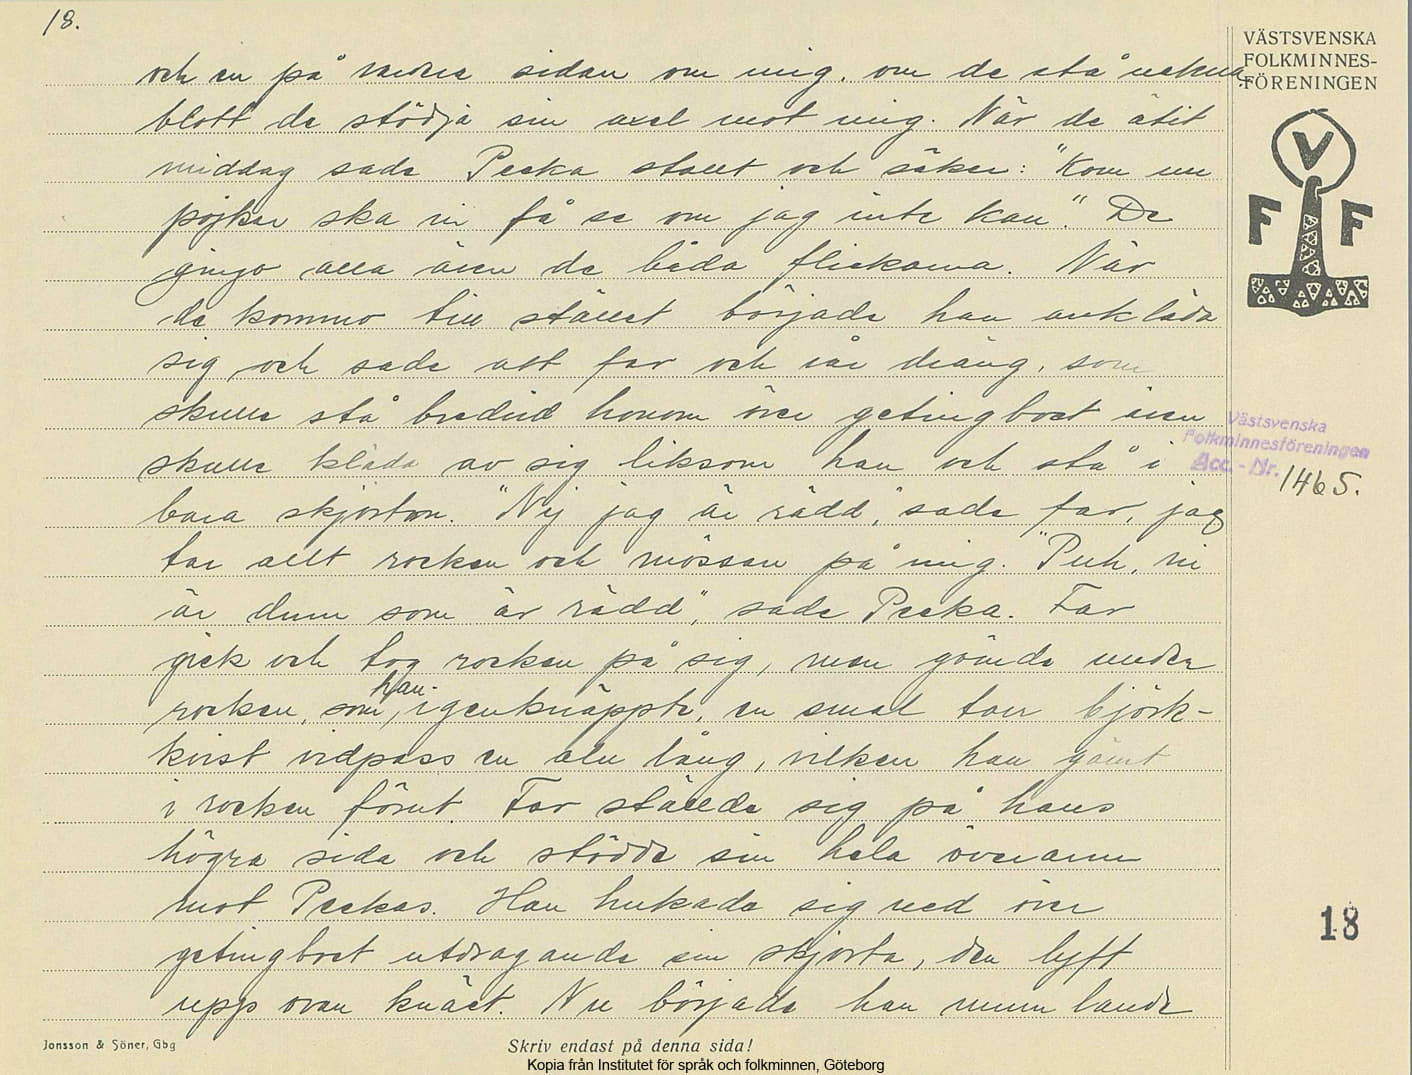 18.
och en på vardera sidan om mig, om de stå nakna,
blott de stödja sin axel mot mig. När de ätit
middag sade Pecka stallt och säker: "Kom nu
pojkar ska ni få se om jag inte kan". De
gingo alla även de båda flickorna. När
de kommo till stället började han avkläda
sig och sade att far och vår dräng, som
skulle stå bredvid honom över getingboet även
skulle kläda av sig liksom han och stå i
bara skjortan. "Nej jag är rädd," sade far, jag
tar allt rocken och mössan på mig. "Puh, ni
är dum som är rädd", sade Pecka. Far
gick och tog rocken på sig, men gömde under
rocken, som han igenknäppte, en smal torr björk-
kvist vidpass en aln lång, vilken han gömt
i rocken förut. Far ställde sig på hans
högra sida och stödde sin hela överarm
mot Peckas. Han hukade sig ned över
getingboet utdragande sin skjorta, den lyft
upp ovan knäet. Nu började han mumlande
VÄSTSVENSKA
FOLKMINNES-
FÖRENINGEN
V
F F
Västsvenska
Folkminnesföreningen
Acc. - Nr. 1465.
18
Jonsson & Söner, Gbg
Skriv endast på denna sida!
Kopia från Institutet för språk och folkminnen, Göteborg